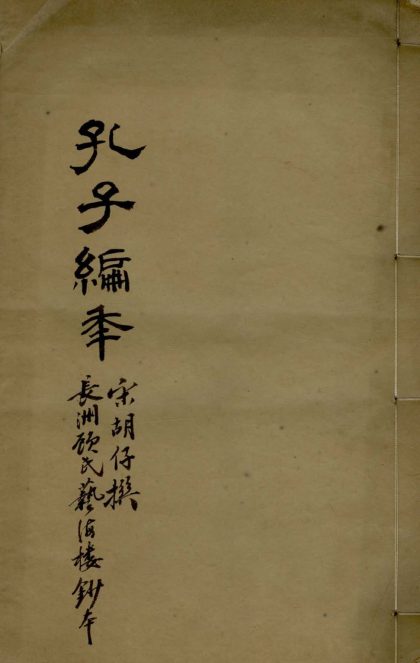 孔子編年
宋胡仔撰
長洲顾氏藝海樓鈔本